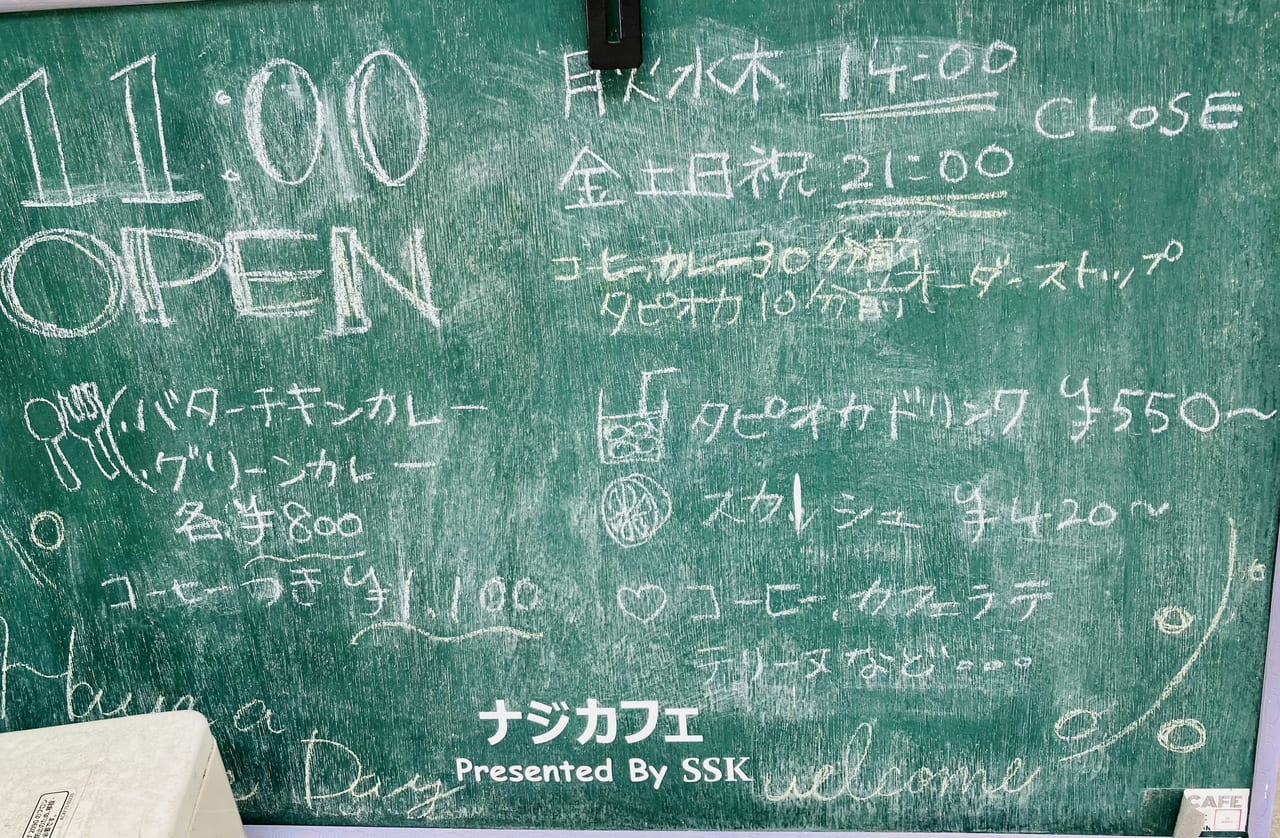 11:00
OPEN
月火水木 14:00
CLOSE
金土日祝 21:00
コーヒー.カレー30分前
タピオカ10分前 オーダーストップ
・バターチキンカレー
・グリーンカレー
各¥800
コーヒーつき ¥1,100
タピオカドリンク ¥550〜
スカルシュ ¥420〜
コーヒー.カフェラテ
テリーヌなど。。。
Have a
Day
welcome
ナジカフェ
Presented By SSK
CAFE